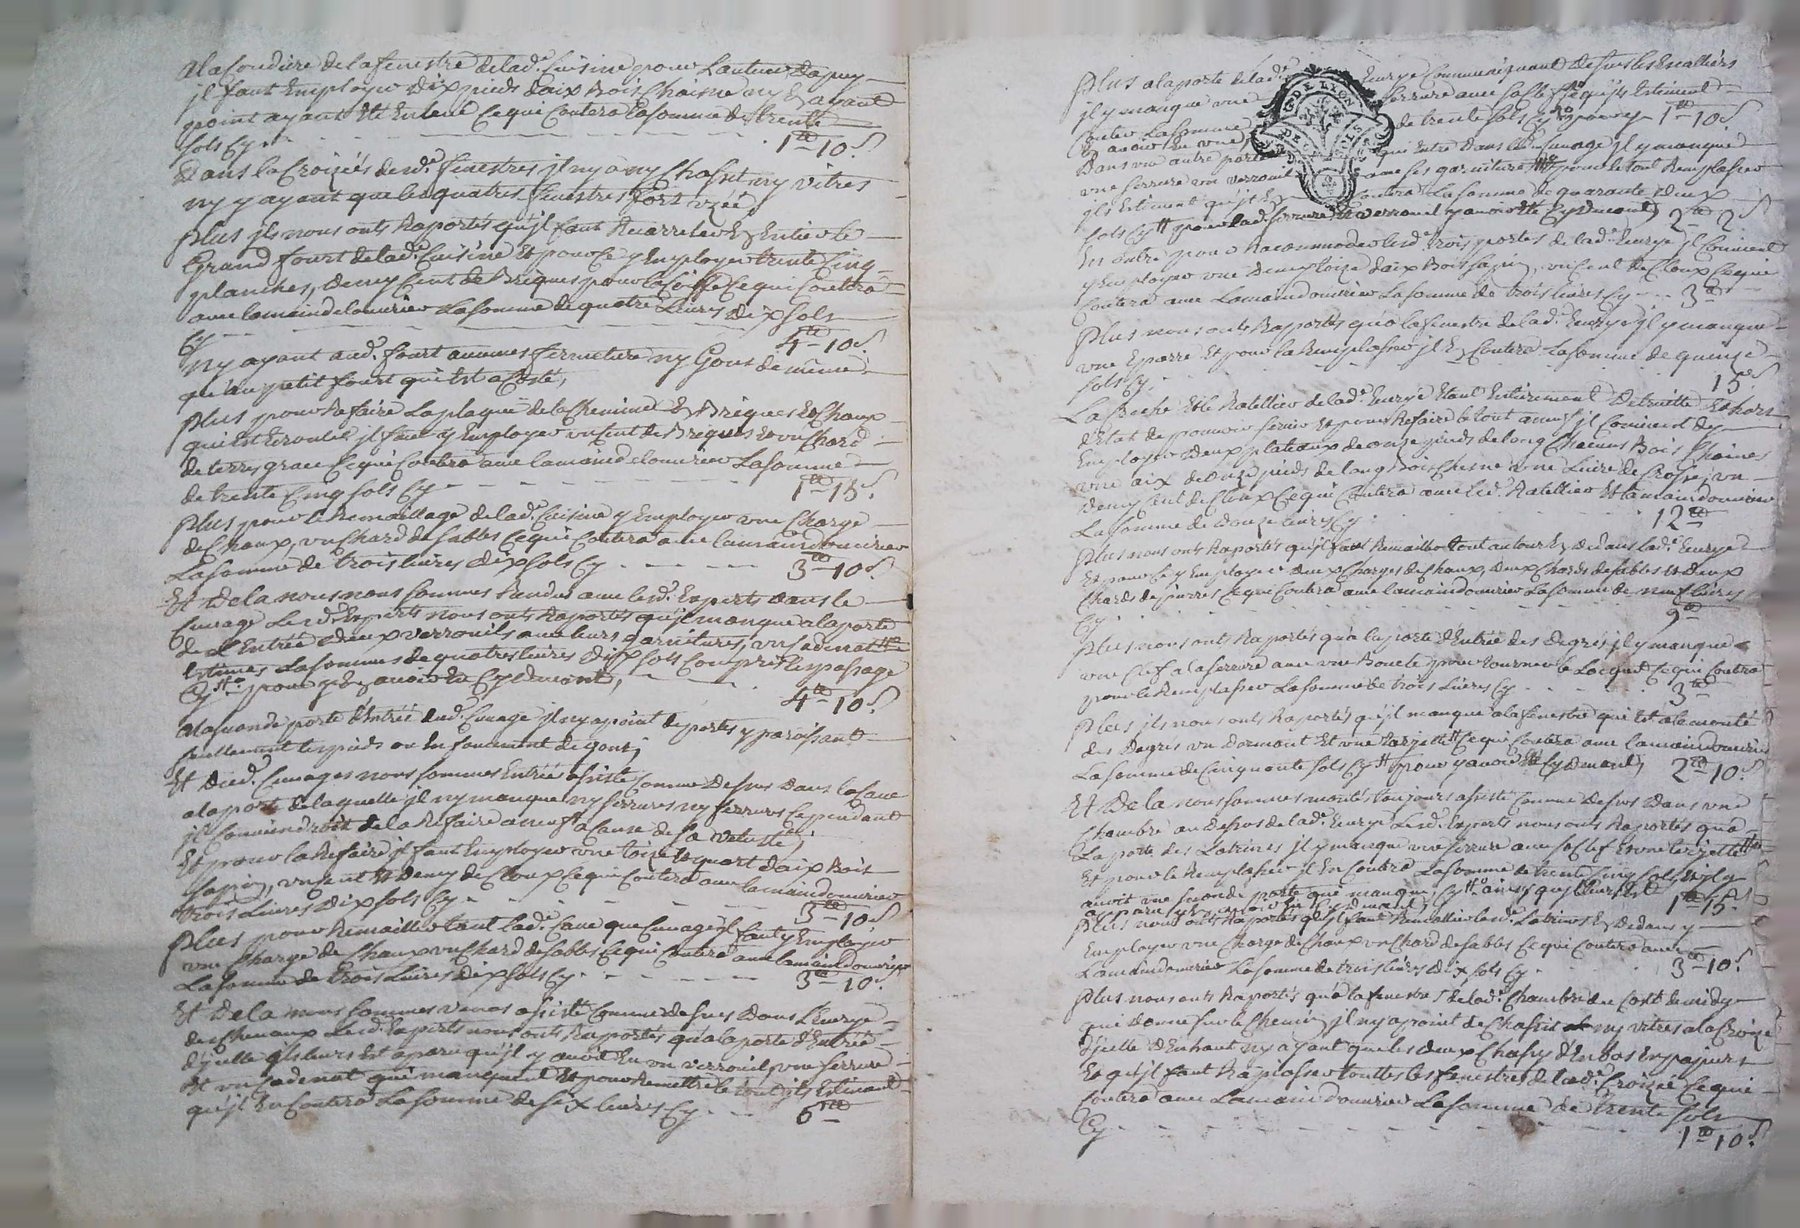 A la Coudiere de la fenestre de lad.e Cuisine pour l'auteur Dapuy
jl faut Employer Dix pieds daix Bois Chaisne ny En ayant
point ayant Eté Enlevé Ce qui Coutera la somme de trente
sols Cy 1tt 10s
Dans la Croizés desd.e fenestres jl ny a ny Chassit ny vitres
ny y ayant que les quatres fenestres fort uzée
Plus jls nous onts Raportés qu'jl faut Recarreler En Entier le
Grand fourt de lad.e Cuisine Et pour Ce y Employer trente Cinq
planches, demy Cent de Briques pour la Ce qui Coutera
avec la main de louvrier La somme de quatre Livres dix sols
Cy 4tt 10s
Ny ayant aud.t fourt aucunes fermeture ny Gons de même
qu'au petit fourt qui Est a Costé,
Plus pour Refaire La plaque de la Cheminée En Briques Et Chaux
qui Est Ecroulée jl faut y Employer un Cent de Briques Et un Chard
de terre grace Ce qui Coutera avec la main de louvrier La somme
de trente Cinq sols Cy 1tt 15s
Plus pour le Remaillage de lad.e Cuisine y Employer une Charge
de Chaux, un Chard de sables Ce qui Coutera avec la main douvrier
La somme de trois livres dix sols Cy 3tt 10s
Et de la nous nous sommes Randus avec lesd.s Experts dans le
Cuvage Lesd.s Experts nous onts Raportés qu'jl manque a la porte
de L'Entrée deux verrouils avec leurs garnitures, un Cadenat
Estimés La sommes de quatres livres dix sols Compris
Cy pour y En avoir Eu Cy devant, 4tt 10s
A la seconde porte d'Entrée dud.t Cuvage jl ny a point de portes y paroissant
seullement les pieds ou Enfoncement de gons,
Et dud.t Cuvages nous sommes Entrés assistés Comme dessus dans la Cave
a la porte de laquelle jl ny manque ny serrures ny ferrures Cependant
jl Conviendroit de la Refaire a neuf a Cause de sa vetusté,
Et pour la Refaire jl faut Employer une toize Et quart daix Bois
sapin, un Cent Et demy de Cloux Ce qui Coutera avec la main douvrier
trois Livres dix sols Cy 3tt 10s
Plus pour Remailler tout lad.e Cave que Cuvage jl faut y Employer
une Charge de Chaux un Chard de sables Ce qui Coutera avec la main douvrier
La somme de trois Livres dix sols Cy 3tt 10s
Et de la nous sommes venus assisté Comme dessus dans L'Ecurye
des Chevaux Lesd.s Experts nous onts Raportés qu'a la porte d'Entrée
d'jcelle jls leurs Est aparu qu'jl y avoit Eu un verrouil, une serrure
Et un Cadenat qui manquent Et pour Remettre le tout jls Estiment
qu'jl En Coutera La somme de six livres Cy 6tt
Plus a la porte de lad.e Ecurye Communiquant dessus les Escalliers
jl y manque une serrure avec sa Clef Ce qu'jls Estiment
Couter La somme de trente sols Cy pour y 1tt 10s
En avoir Eu une,
Dans une autre porte qui Entre dans led.t Cuvage jl y manque
une serrure un verrouil avec ses garniture pour le tout Remplasser
jls Estiment qu'jl En Coutera La somme de quarante deux
sols Cy pour lad.e serrure Et verrouil y avoir Eté Cy devant, 2tt 2s
En outre pour Racommoder lesd.s trois portes de lad.e Ecurye jl Convient
y Employer une demy toize daix Bois sapin, un Cent de Cloux Ce qui
Coutera avec La main douvrier La somme de trois livres Cy 3tt
Plus nous onts Raportés qu'a la fenestre de lad.e Ecurye jl y manque
une Eparre Et pour la Remplasser jl En Coutera La somme de quinze
sols Cy 15s
La Creche Et le Ratellier de lad.e Ecurye Etant Entierement Detruitte Et hors
d'Etat de pouvoir servir Et pour Refaire le tout a neuf jl Convient dy
Employer deux plateaux de onze pieds de long Chacuns Bois Chaines
une aix de onze pieds de long Bois Chesne une Livre de Crosse, un
demy Cent de Cloux Ce qui Coutera avec led.t Ratellier Et la main douvrier
La somme de douze livres Cy 12tt
Plus nous onts Raportés qu'jl faut Remailler tout autour En dedans lad.e Ecurye
Et pour Ce y Employer deux Charges de Chaux, deux Chards de sables Et deux
Chards de pierres Ce qui Coutera avec la main douvrier La somme de neuf livres
Cy 9tt
Plus nous onts Raportés qu'a la porte d'Entrée des degrés jl y manque
une Clef a la serrure avec une Boucle pour tourner le Loquet Ce qui Coutera
pour le Remplasser La somme de trois Livres Cy 3tt
Plus jls nous onts Raportés qu'jl manque a la fenestre qui Est a la monté
des Degrés un Dormant Et une tarjette Ce qui Coutera avec la main douvrier
La somme de Cinquante sols Cy pour y avoir Eté Cy devant, 2tt 10s
Et De la nous sommes montés toujours assisté Comme dessus dans une
Chambre au dessus de lad.e Ecurye Lesd.s Experts nous onts Raportés qu'a
La porte des Latrines jl y manque une serrure avec sa Clef Et une tarjette
Et pour le Remplasser jl En Coutera La somme de trente Cinq sols, Et jl y
avoit une seconde porte qui manque, Cy ainsy qu'jl leurs Est 1tt 15s
apparu y en avoir Eu Cy devant
Plus nous onts Raportés qu'jl faut Remailler lesd.s Latrines En dedans y
Employer une Charge de Chaux un Chard de sables Ce qui Coutera avec
La main douvrier La somme de trois livres Dix sols Cy 3tt 10s
Plus nous onts Raportés qu'a la fenestre de lad.e Chambre du Costé de midy
qui donne sur le Chemin, jl ny a point de Chassit ny vitres a la Croizé
d'jcelle d'Enhaut ny ayant que les deux Chassis d'Enbas En papiers
Et qu'jl faut Rapiesser touttes les fenestres de lad.e Croizée Ce qui
Coutera avec La main douvrier La somme de trente sols
Cy 1tt 10s
DE LYON